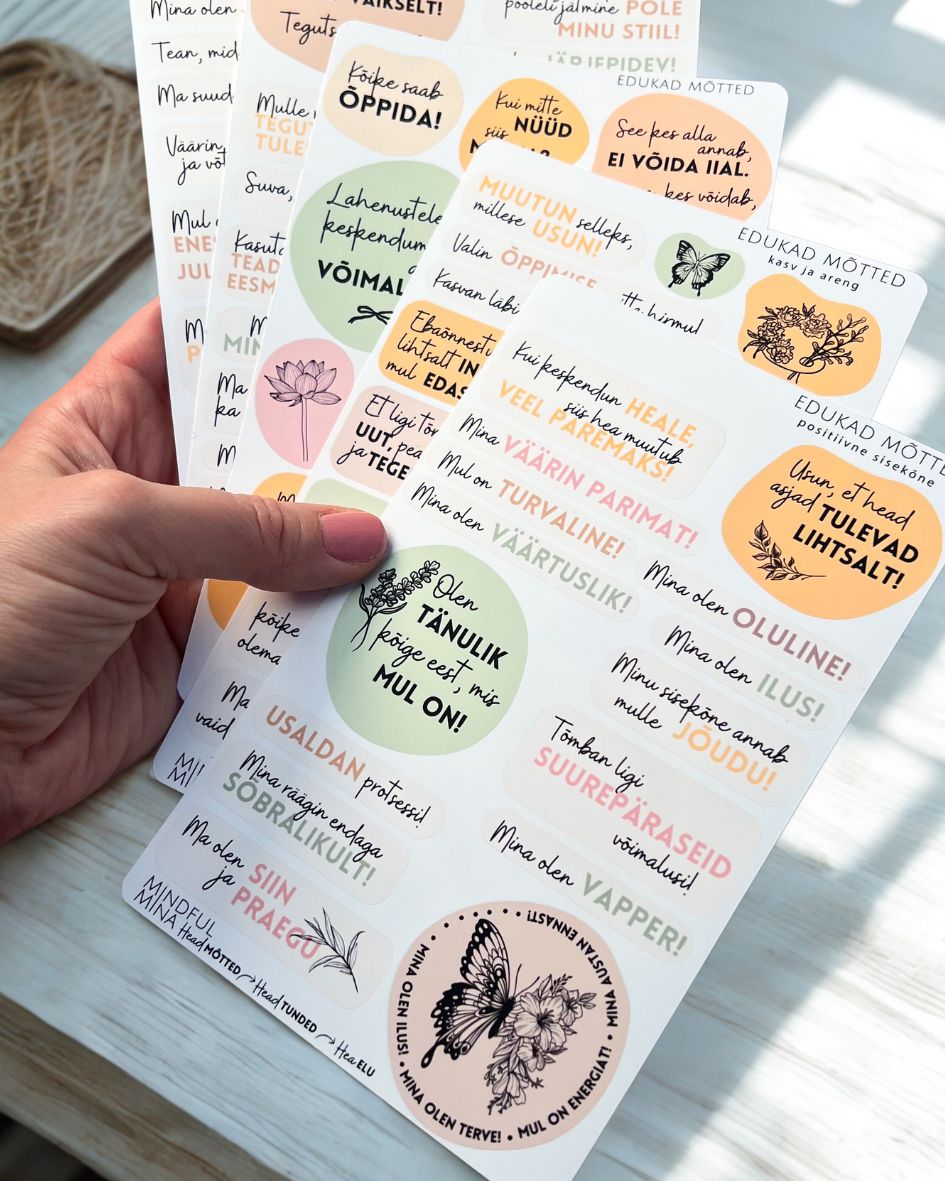 Mina olen
Tean, mid
Ma suud
Väärin
ja võt
Mul
ENE
JUL
VÄIKSELT!
Teguts
pooleli jätmine POLE
MINU STIIL!
JÄRJEPIDEV!
Mulle
TEGUT
TULE
Suva,
Kasuta
TEAD
EESM
MIN
Ma
ka
EDUKAD MÕTTED
Kõike saab
ÕPPIDA!
Kui mitte
NÜÜD
siis
See kes alla
annab,
EI VÕIDA IIAL.
kes võidab,
Lahenustele
keskendum
VÕIMAL
kõike
olema
Ma
vaid
EDUKAD MÕTTED
kasv ja areng
MUUTUN selleks,
millesse USUN!
Valin ÕPPIMISE
hirmul
Kasvan läbi
Ebaõnnestu
lihtsalt IN
mul EDAS
Et ligi tõm
UUT, pea
ja TEGE
EDUKAD MÕTTE
positiivne sisekõne
Kui keskendun HEALE,
siis hea muutub
VEEL PAREMAKS!
Mina VÄÄRIN PARIMAT!
Mul on TURVALINE!
Mina olen VÄÄRTUSLIK!
Usun, et head
asjad TULEVAD
LIHTSALT!
Mina olen OLULINE!
Mina olen ILUS!
Minu sisekõne annab
mulle JÕUDU!
Olen
TÄNULIK
kõige eest, mis
MUL ON!
Tõmban ligi
SUUREPÄRASEID
võimalusi!
USALDAN protsessi!
Mina räägin endaga
SÕBRALIKULT!
Mina olen VAPPER!
Ma olen SIIN
ja PRAEGU
MINA OLEN ILUS! • MINA OLEN TERVE! • MUL ON ENERGIAT! • MINA AUSTAN ENNAST!
MINDFUL
MINA
Head MÕTTED Head TUNDED Hea ELU